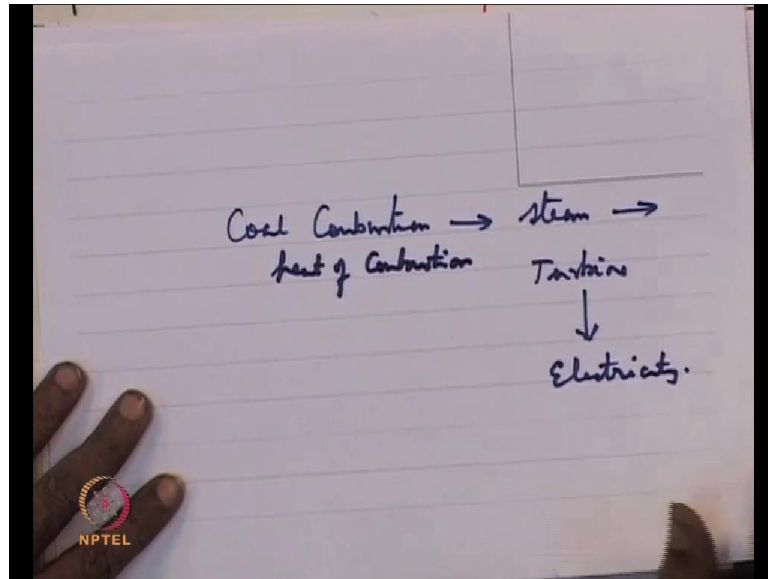 Coal Combustion → steam →
heat of Combustion Turbine
↓
Electricity.
NPTEL